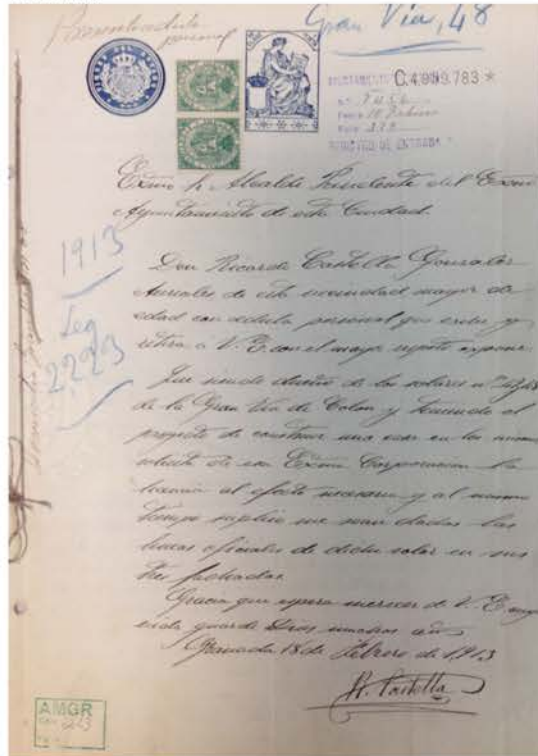 Gran Vía, 48
personal
C.4.999.783 *
REGISTRO DE ENTRADA
Exmo Sr. Alcalde Presidente del Exmo
Ayuntamiento de esta Ciudad.
1913
Leg
2223
Don Ricardo Castella Gonzalez
de esta vecindad mayor de
edad con cedula personal que exibe y
retira a V. E con el mayor respeto expone
Que siendo dueño de los solares nº
de la Gran Via de Colon y teniendo el
proyecto de construir una casa en los mismos
solicita de esa Exma Corporacion la
licencia al efecto necesaria y al mismo
tiempo suplica me sean dadas las
lineas oficiales de dicho solar en sus
tres fachadas
Gracia que espera merecer de V. E cuya
vida guarde Dios muchos años
Granada 18 de Febrero de 1913
R. Castella
AMGR